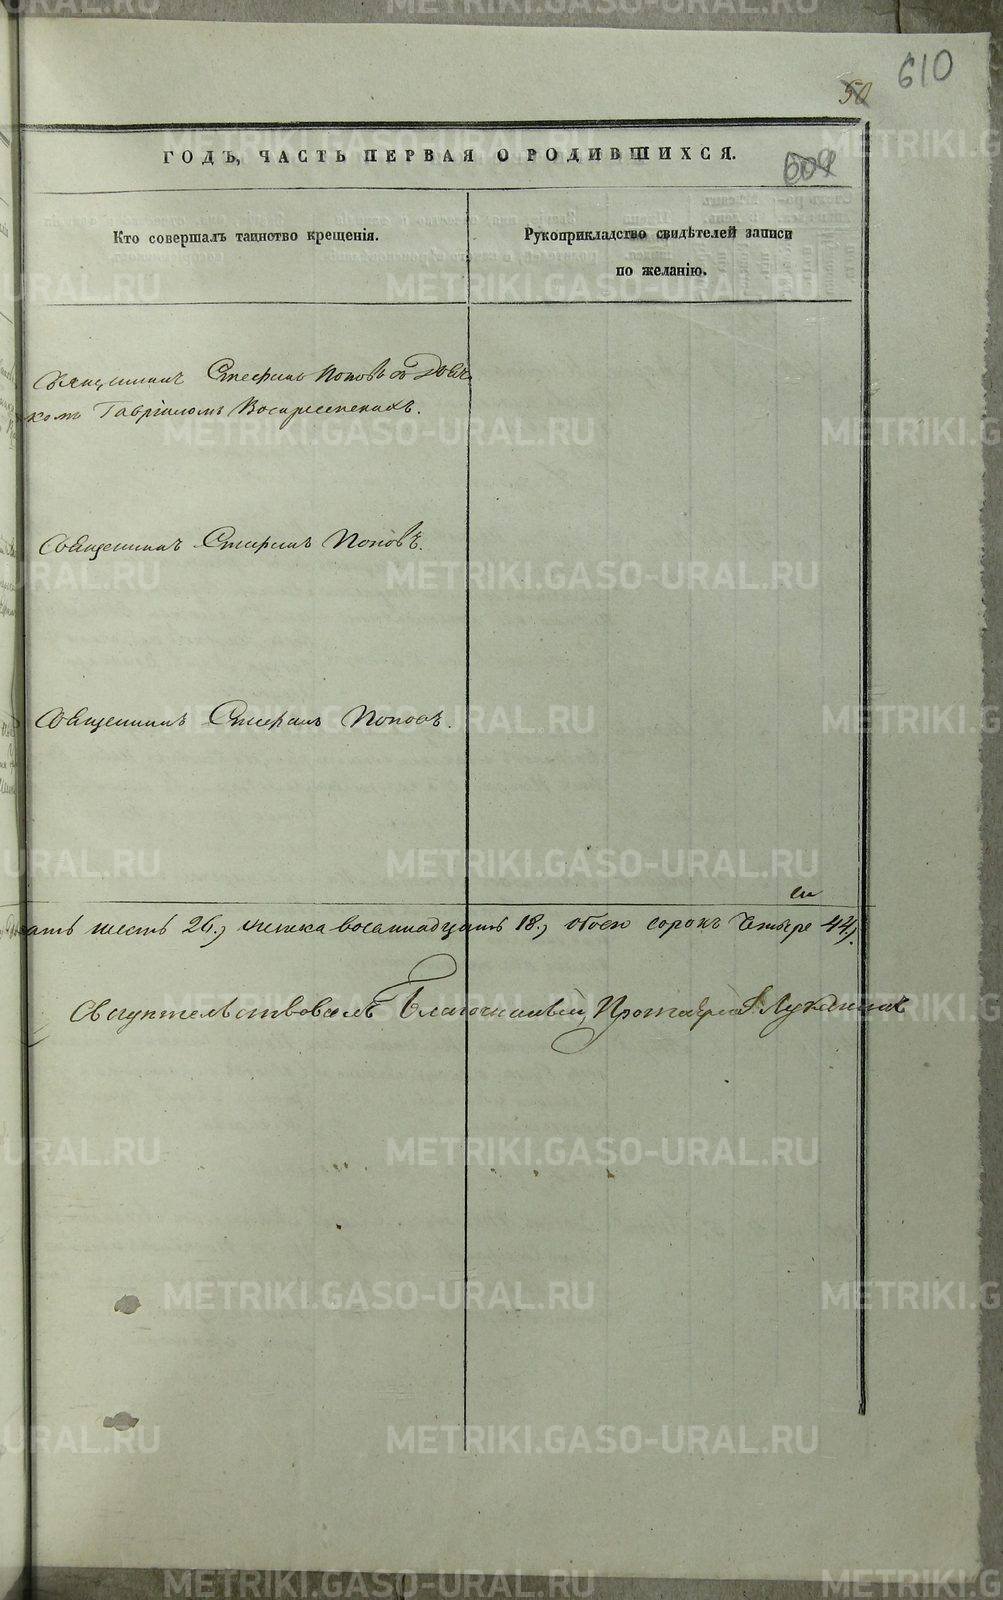 610
50
609
ГОДЪ, ЧАСТЬ ПЕРВАЯ О РОДИВШИХСЯ.
Кто совершалъ таинство крещенія.
Рукоприкладство свидѣтелей записи
по желанію.
Священникъ Стефанъ Поповъ съ Дьяч-
комъ Гавріиломъ Воскресенскихъ.
Священникъ Стефанъ Поповъ.
Священникъ Стефанъ Поповъ.
дцать шесть 26, женска восемнадцать 18, обоего сорокъ четыре 44.
Свидѣтельствовалъ Благочинный, Протоіерей
METRIKI.GASO-URAL.RU